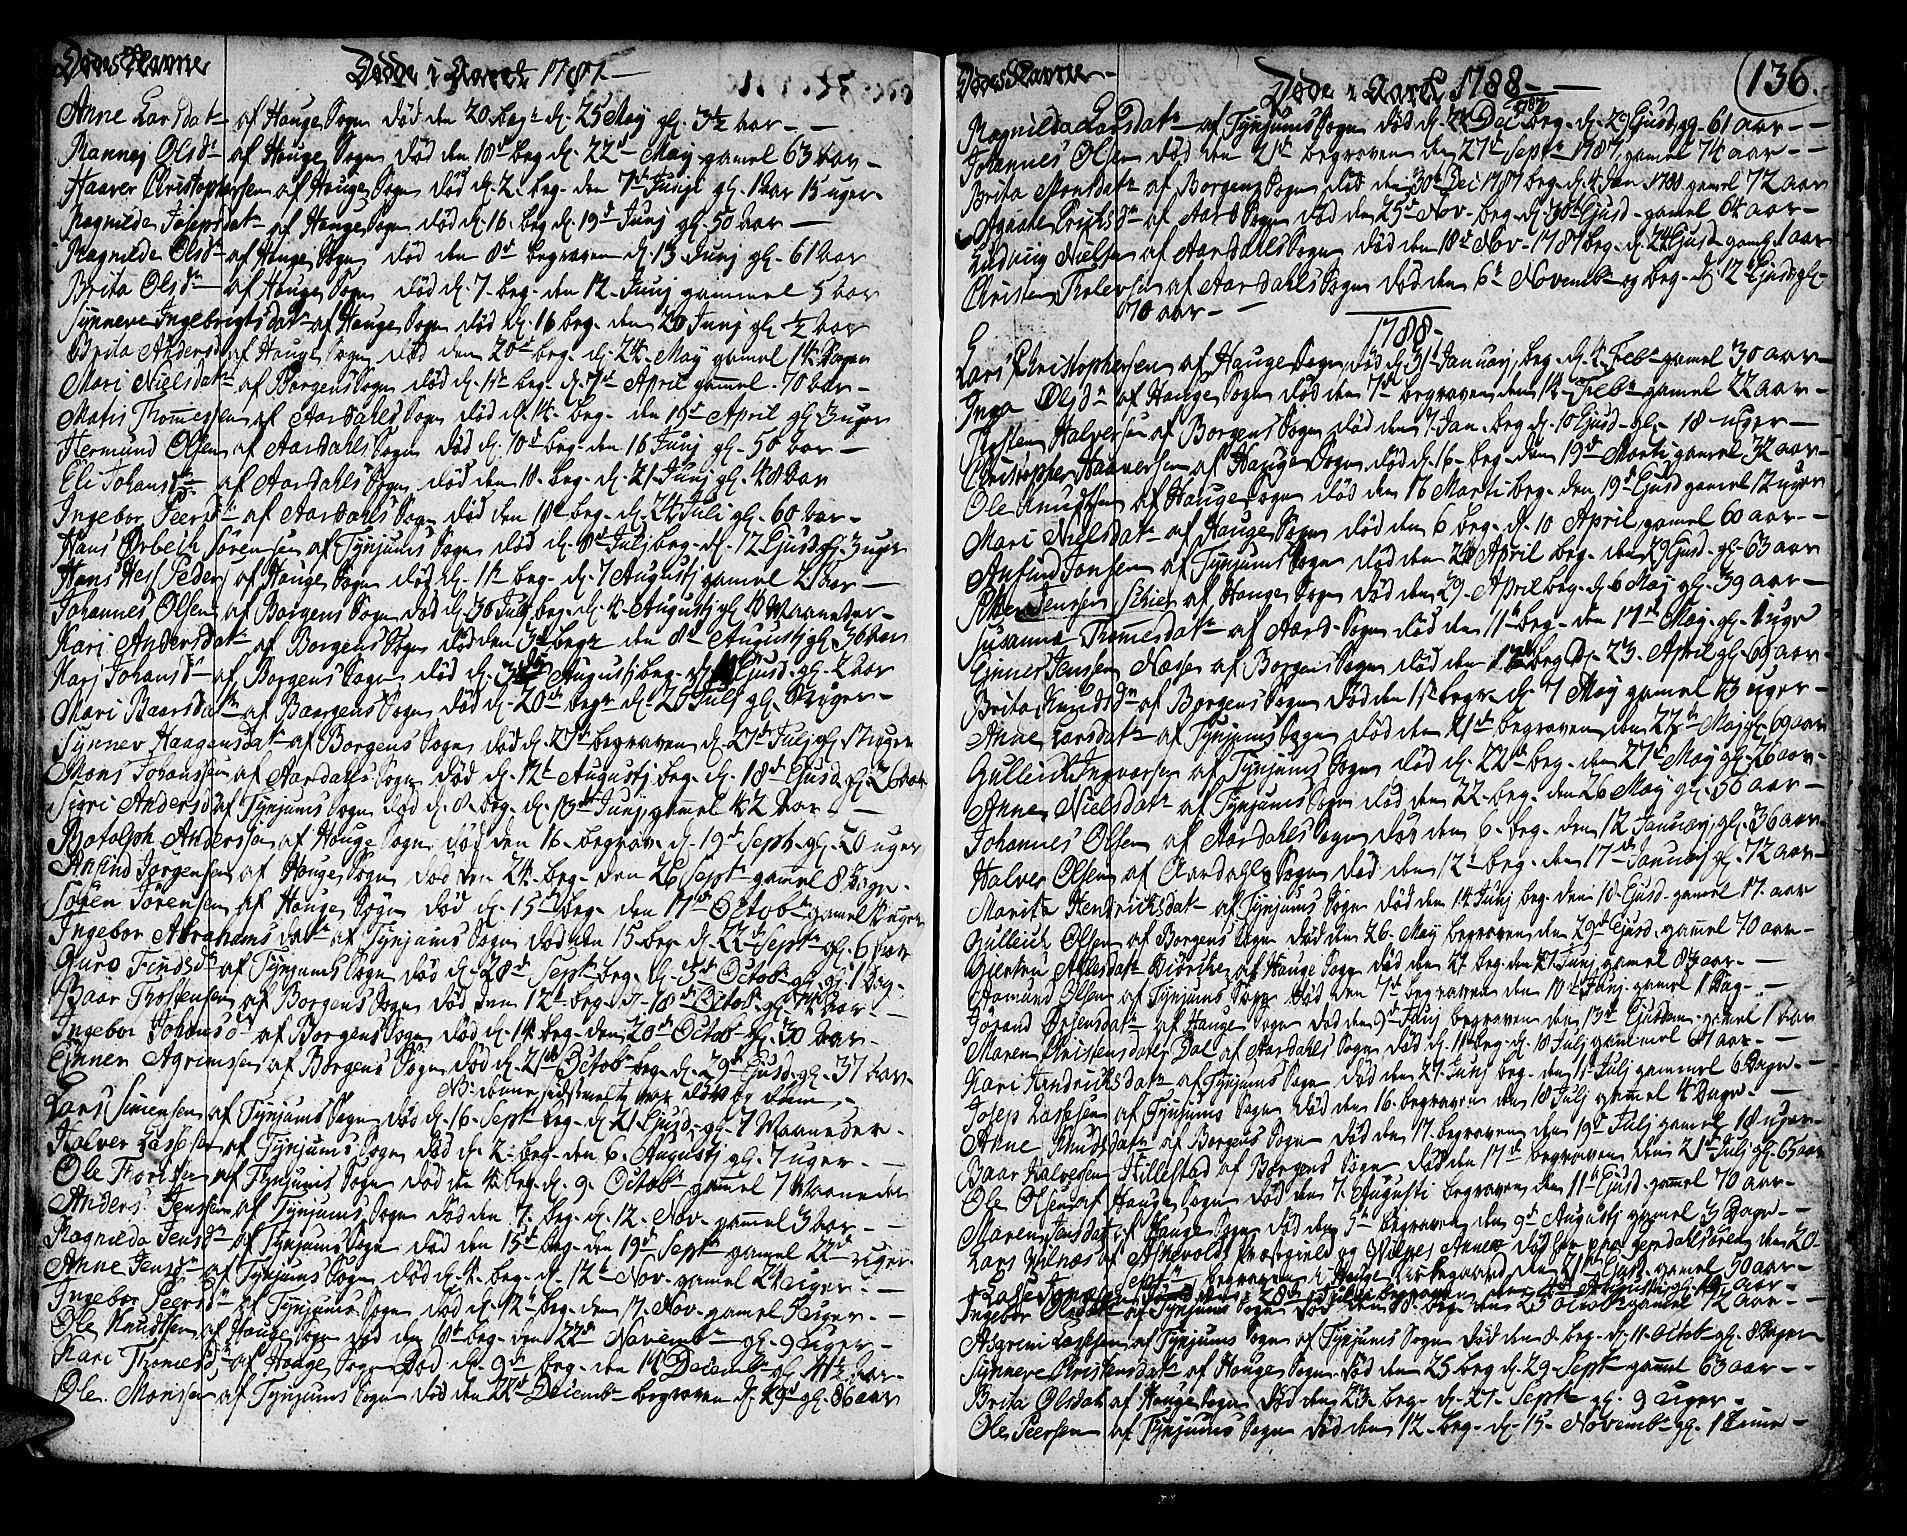 Dødes Navne Døde i Aaret 1787
Anne Larsdatr af Hauge Sogn død den 20 begr d. 25 May gl. 3½ aar
Rannej Olsdr af Hauge Sogn død den 18de beg d. 22d May gamel 63 aar
Haaver Christophersen af Hauge Sogn død d. 2 beg. den 7de Junij gl. 1 aar 15 uger
Ragnilda Josepsdatr af Hauge Sogn død d. 16. beg d. 19d Junj gl. 50 aar
Ragnilde Olsdr af Hauge Sogn død den 8de begraven d. 13 Junj gl. 61 aar
Brita Olsdr af Hauge Sogn død d. 7. beg. den 12 Junj gammel 5 aar
Synneve Ingebrigtsdatr af Hauge Sogn død d. 16 beg. den 20 Junj gl. ½ aar
Brita Andersdr af Hauge Sogn død den 20de beg. d. 24. May gamel 14 Dager
Mari Nielsdatr af Borgens Sogn død d. beg. d. 7de April gamel 70 aar
Matis Thommesen af Aardahls Sogn død d. 14. beg. den April gl. 3 uger
Hermund Olsen af Aardahls Sogn død d. 10de beg. den 16 Junj gl. 50 aar
Eli Johansdr af Aardahls Sogn død den 18. beg. d. 21 Junj gl. 48 aar
Ingebor Peersdr af Aardahls Sogn død den 18d beg. d. 24 Juli gl. 60 aar
Hans Ørbech Sørensen af Tynjums Sogn død d. 8de Julj beg. d. 12 Ejusd gl. 3 uger
Hans Hess Peder af Hauge Sogn død d. beg. d. 7 Augustj gamel aar
Johannes Olsen af Borgens Sogn død d. 30 Juli beg. d. 4. Augustj gl. 4 Maaneder
Kari Andersdatr af Borgens Sogn død den 3d begr den 8de Augustj gl. 36 aar
Kari Johansdr af Borgens Sogn død d. Augustj beg. d. Ejusd. gl. 2 aar
Mari Baarsdatr af Baargens Sogn død d. 20de begr d. 25 Julj gl. uger
Synnev Haagensdatr af Borgens Sogn død d. begraven d. Julj gl. uger
Mons Johansen af Aardahls Sogn død d. 12te Augustj beg. d. 18de Ejusd. gl. 26 aar
Sigri Andersdr af Tynjums Sogn død d. 8. beg. d. 13de Junj gamel 42 aar
Botolph Anderssen af Hauge Sogn død den 16. begrav. d. 19de Septr gl. 20 uger
Anfind Jørgensen af Hauge Sogn død den 24. beg. den 26 Septr gamel 8 Dage
Søren Sørensen af Hauge Sogn død d. 15de beg. den 17de Octobr gamel uger
Ingebor Abrahamsdatr af Tynjums Sogn død den 15. beg. d. 22de Septr gl. 6 aar
Guro Findsdr af Tynjums Sogn død d. 28de Septr beg. d. Octob. gl. 1 Dag
Baar Thostensen af Borgens Sogn død den 12te beg. d. 18de Octob. gl. 74 aar
Ingebor Johansdr af Borgens Sogn død d. 14 beg. den 20de Octob. gl. 30 aar
Einner Agrimsen af Borgens Sogn død d. 21de Octob. beg. d. 29de Ejusd. gl. 37 aar
NB. denne sidstmelte var døv og dum
Lars Simensen af Tynjums Sogn død d. 16. Septr beg. d. 21 Ejusd. gl. 7 Maaneder
Halver Lassesen af Tynjums Sogn død d. 2. beg. den 6. Augustj gl. 7 uger
Ole af Tynjums Sogn død den 4. beg. d. 9. Octobr gamel 7 Maaneder
Anders Jenssen af Tynjums Sogn død den 7. beg. d. 12. Nov. gamel 3 aar
Ragnilda Jensdr af Tynjums Sogn død den 15de beg. den 19de Septr gamel 22 uger
Anne Jensdr af Tynjums Sogn død d. 4. beg. d. 12te Nov. gamel 24 uger
Ingebor Peersdr af Tynjums Sogn død d. 12te beg. den 17. Nov. gamel uger
Ole Knudtsen af Hauge Sogn død den 18de beg. den 22de Novembr gl. 9 uger
Kari Thomesdr af Hauge Sogn død d. 9de beg. den 14 Decembr gl. aar
Ole Monsen af Tynjums Sogn død den 22de Decembr begraven d. 29de gl. 86 aar
Dødes Navne Døde i Aaret 1788 136.
Ragnilda Larsdatr af Tynjums Sogn død d. 24 Decbr 1787 beg. d. 29 Ejusd. gl. 61 aar
Johannes Olsen død den 21de begraven den 27de Septr 1787 gamel 74 aar
Brita Monsdatr af Borgens Sogn død den 30te Dec 1787 beg. d. 4 Jan 1788 gamel 72 aar
Agaate Erichsdr af Aard. Sogn død den 25de Nov. beg. d. 30de Ejusd. gamel 64 aar
Ludvig Nielsen af Aardahls Sogn død den 18de Nov. 1787 beg. d. 24 Ejusd. gamel 1 aar
Christen Tholevsen af Aardahls Sogn død den 6te Novembr og beg. d. 12 Ejusd. gl.
70 aar
1788
Lars Christophersen af Hauge Sogn død d. 31 Januarj beg. d. 4. Febr gamel 30 aar
Inga Olsdr af Hauge Sogn død den 7de begraven den 14 Febr gamel 22 aar
Thosten Halversen af Borgens Sogn død den 7. Jan. beg d. 10 Ejusd. gl. 18 uger
Christopher Haaversen af Hauge Sogn død d. 16. beg. den 19de Marti gamel 32 aar
Ole Knudtsen af Hauge Sogn død den 16 Marti beg. den 19de Ejusd gamel 12 uger
Mari Nielsdatr af Hauge Sogn død den 6 beg. d. 10 April gamel 60 aar
Anfind Jonsen af Tynjums Sogn død den April beg. den 29 Ejusd. gl. 63 aar
Jenssen af Hauge Sogn død den 29. April beg. d. 6 May gl. 39 aar
Susanna Thomesdatr af Aard. Sogn død den 11te beg. den 17de May gl. uge
Einner Jenssen Næsse af Borgens Sogn død den beg. d. 23. April gl. 65 aar
Brita Knudsdr af Borgens Sogn død den begr d. 7 May gamel 13 uger
Anne Larsdatr af Tynjums Sogn død den 21de begraven den 27te Maj gl. 69 aar
Gulleich Ingvorsen af Tynjums Sogn død d. 22de beg. den 27de May gl. 26 aar
Anne Nielsdatr af Tynjums Sogn død den 22. beg. den 26 May gl. 50 aar
Johannes Olsen af Aardahls Sogn død den 6. beg. den 12 Januarj gl. 36 aar
Halver Olsen af Aardahls Sogn død den 12te beg. den 17de Januarj gl. 72 aar
Marita Hendrichsdatr af Tynjums Sogn død den 14 Junj beg. den 18 Ejusd. gamel 17. aar
Gulleich Olsen af Borgens Sogn død den 26. May begraven den 29de Ejusd. gamel 70 aar
Giertru Atlesdatr Biørche af Hauge Sogn død den 21 beg. den 27 Junj gamel aar
Osmund Olsen af Tynjums Sogn død den 7de begraven den 10de Junj gamel 1 Dag
Jorand Orjensdatr af Hauge Sogn død den 9de Junj begraven den 13de Ejusdem gamel 1 aar
Maren Christensdatr Dal af Aardahls Sogn død d. 11 beg. d. 18 Julj gammel 61 aar
Kari Hendrichsdatr af Tynjums Sogn død den 27 Junj beg. den 1te Julj gammel 6 Dage
Josep Lassesen af Tynjums Sogn død den 16. begraven den 18 Julj gamel 4 Dage
Anne Knudsdatr af Borgens Sogn død den 17. begraven den 19de Julj gamel 18 uger
Baar Halvesen Hillestad af Borgens Sogn død den 17de begraven den 21de Julj gl. 65 aar
Ole Olsen af Hauge Sogn død den 7. Augusti begraven den 11te Ejusd. gamel 70 aar
Maren Jensdatr af Hauge Sogn død den 5te begraven den 9de Augustj gamel 3 Dage
Lars Vilnæs af Aschevolds Præstegield og Vilnes Annex død her paa Lerdahlsøren den 20
Septr begraven i Hauge Kirkegaard den 21 Ejusd. gamel 50 aar
Lasse af Tynjums Sogn død den 28de Julj begraven den Augusti gl. 19 aar
Ingebor Olsdatr af Tynjums Sogn død den 18. beg. den 23 Octobr gamel 72 aar
Asgrim Lassesen af Tynjums Sogn af Tynjums Sogn død den 8. beg. d. 11. Octob gl. 8 Dager
Synneve Christensdatr af Hauge Sogn død den 25 beg d. 29. Septr gamel 63 aar
Brita Olsdatr af Hauge Sogn død den 23. beg. d. 27. Septr gl. 9 uger
Ole Peersen af Tynjums Sogn død den 12. beg. d. 15. Novembr gl. 1 time